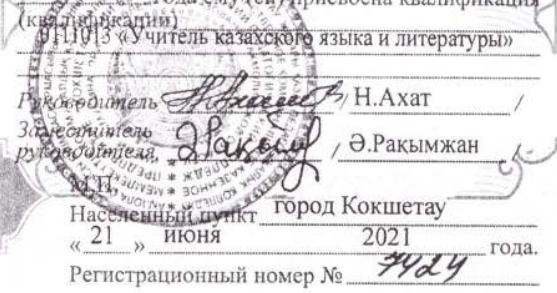 года ему (ей) присвоена квалификация
(квалификации)
0111013 «Учитель казахского языка и литературы»
Руководитель / Н.Ахат /
Заместитель
руководителя / Ә.Рақымжан /
М.П.
Населенный пункт город Кокшетау
« 21 » июня 2021 года.
Регистрационный номер № 7424